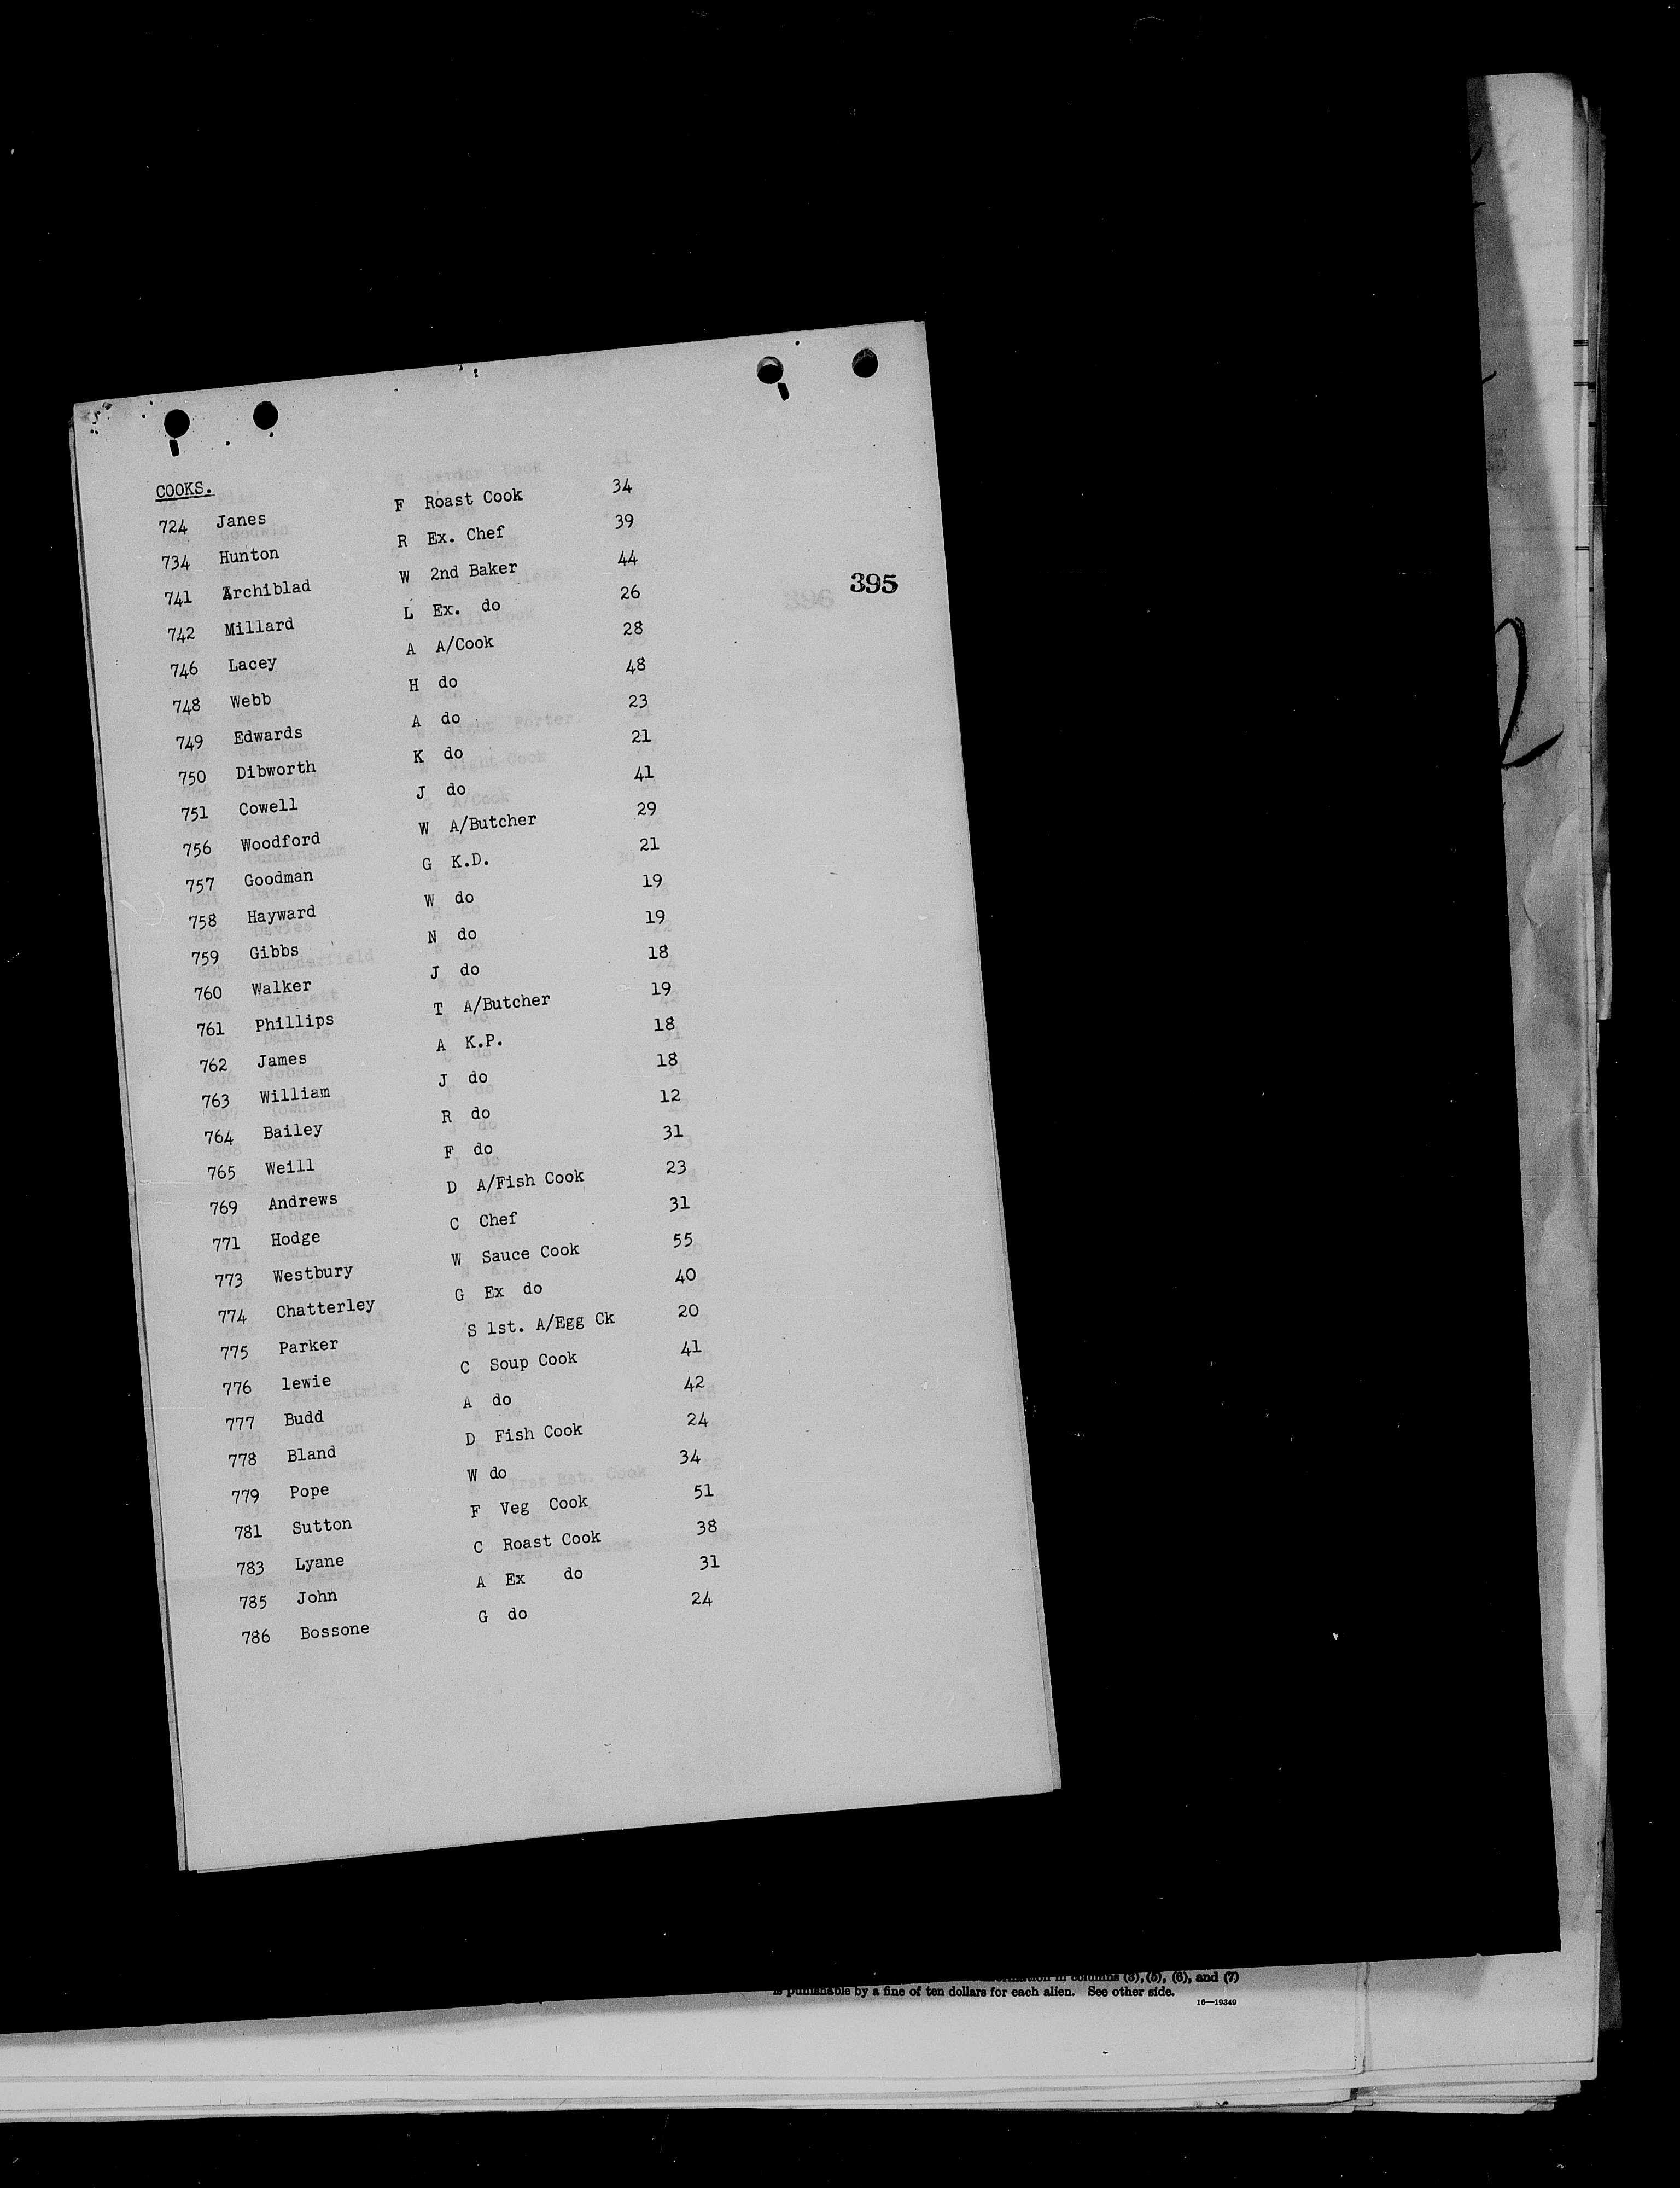 COOKS.
724 Janes F Roast Cook 34
734 Hunton R Ex. Chef 39
741 Archiblad W 2nd Baker 44
395
742 Millard L Ex. do 26
746 Lacey A A/Cook 28
748 Webb H do 48
749 Edwards A do 23
750 Dibworth K do 21
751 Cowell J do 41
756 Woodford W A/Butcher 29
757 Goodman G K.D. 21
758 Hayward W do 19
759 Gibbs N do 19
760 Walker J do 18
761 Phillips T A/Butcher 19
762 James A K.P. 18
763 William J do 18
764 Bailey R do 12
765 Weill F do 31
769 Andrews D A/Fish Cook 23
771 Hodge C Chef 31
773 Westbury W Sauce Cook 55
774 Chatterley G Ex do 40
775 Parker S 1st. A/Egg Ck 20
776 lewie C Soup Cook 41
777 Budd A do 42
778 Bland D Fish Cook 24
779 Pope W do 34
781 Sutton F Veg Cook 51
783 Lyane C Roast Cook 38
785 John A Ex do 31
786 Bossone G do 24
in columns (3), (5), (6), and (7)
is punishable by a fine of ten dollars for each alien. See other side.
16—19349